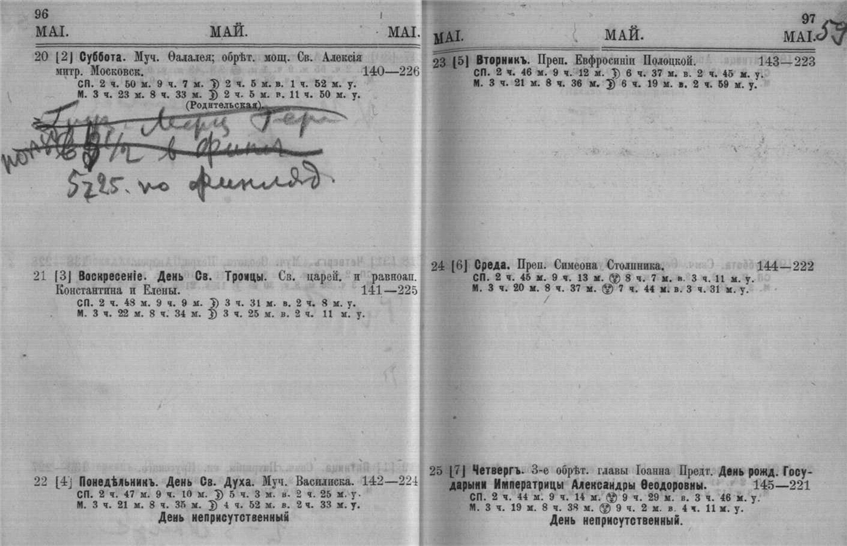 96
MAI. МАЙ. MAI.
20 [2] Суббота. Муч. Ѳалалея; обрѣт. мощ. Св. Алексія
митр. Московск. 140—226
СП. 2 ч. 50 м. 9 ч. 7 м. 2 ч. 5 м. в. 1 ч. 52 м. у.
М. 3 ч. 23 м. 8 ч. 33 м. 2 ч. 5 м. в. 11 ч. 50 м. у.
(Родительская).
6 1/2 в
5 25. по финлянд.
21 [3] Воскресеніе. День Св. Троицы. Св. царей, и равноап.
Константина и Елены. 141—225
СП. 2 ч. 48 м. 9 ч. 9 м. 3 ч. 31 м. в. 2 ч. 8 м. у.
М. 3 ч. 22 м. 8 ч. 34 м. 3 ч. 25 м. в. 2 ч. 11 м. у.
22 [4] Понедѣльникъ. День Св. Духа. Муч. Василиска. 142—224
СП. 2 ч. 47 м. 9 ч. 10 м. 5 ч. 3 м. в. 2 ч. 25 м. у.
М. 3 ч. 21 м. 8 ч. 35 м. 4 ч. 52 м. в. 2 ч. 33 м. у.
День неприсутственный
97
MAI. МАЙ. MAI. 59
23 [5] Вторникъ. Преп. Евфросиніи Полоцкой. 143—223
СП. 2 ч. 46 м. 9 ч. 12 м. 6 ч. 37 м. в. 2 ч. 45 м. у.
М. 3 ч. 21 м. 8 ч. 36 м. 6 ч. 19 м. в. 2 ч. 59 м. у.
24 [6] Среда. Преп. Симеона Столпника. 144—222
СП. 2 ч. 45 м. 9 ч. 13 м. 8 ч. 7 м. в. 3 ч. 11 м. у.
М. 3 ч. 20 м. 8 ч. 37 м. 7 ч. 44 м. в. 3 ч. 31 м. у.
25 [7] Четвергъ. 3-е обрѣт. главы Іоанна Предт. День рожд. Госу-
дарыни Императрицы Александры Ѳеодоровны. 145—221
СП. 2 ч. 44 м. 9 ч. 14 м. 9 ч. 29 м. в. 3 ч. 46 м. у.
М. 3 ч. 19 м. 8 ч. 38 м. 9 ч. 2 м. в. 4 ч. 11 м. у.
День неприсутственный.